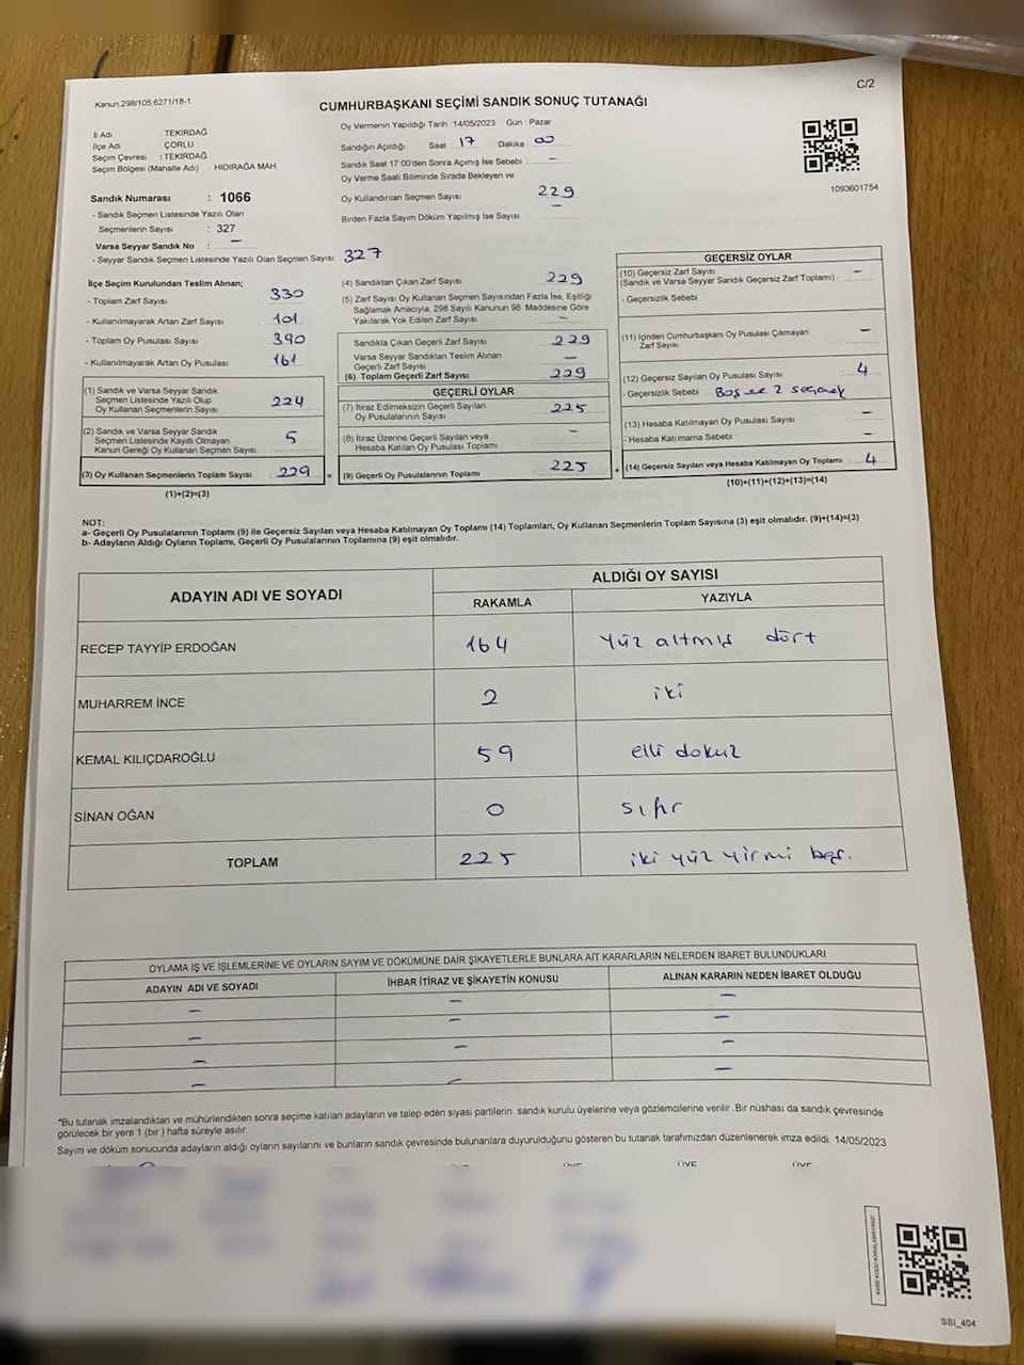 C/2
Kanun.298/105,6271/18-1
CUMHURBAŞKANI SEÇİMİ SANDIK SONUÇ TUTANAĞI
İl Adı TEKİRDAĞ
İlçe Adı ÇORLU
Seçim Çevresi : TEKİRDAĞ
Seçim Bölgesi (Mahalle Adı) HIDIRAĞA MAH.
Oy Vermenin Yapıldığı Tarih :14/05/2023 Gün : Pazar
Sandığın Açıldığı Saat 17 Dakika 00
Sandık Saat 17:00'den Sonra Açımış İse Sebebi : —
Oy Verme Saati Bitiminde Sırada Bekleyen ve
Oy Kullandırılan Seçmen Sayısı 229
Birden Fazla Sayım Döküm Yapılmış İse Sayısı —
1093601754
Sandık Numarası : 1066
- Sandık Seçmen Listesinde Yazılı Olan
Seçmenlerin Sayısı : 327
Varsa Seyyar Sandık No : —
- Seyyar Sandık Seçmen Listesinde Yazılı Olan Seçmen Sayısı: 327
İlçe Seçim Kurulundan Teslim Alınan;
- Toplam Zarf Sayısı 330
- Kullanılmayarak Artan Zarf Sayısı 101
- Toplam Oy Pusulası Sayısı 390
- Kullanılmayarak Artan Oy Pusulası 161
(1) Sandık ve Varsa Seyyar Sandık
Seçmen Listesinde Yazılı Olup
Oy Kullanan Seçmenlerin Sayısı 224
(2) Sandık ve Varsa Seyyar Sandık
Seçmen Listesinde Kayıtlı Olmayan
Kanun Gereği Oy Kullanan Seçmen Sayısı 5
(3) Oy Kullanan Seçmenlerin Toplam Sayısı 229 =
(1)+(2)=(3)
(4) Sandıktan Çıkan Zarf Sayısı 229
(5) Zarf Sayısı Oy Kullanan Seçmen Sayısından Fazla İse, Eşitliği
Sağlamak Amacıyla, 298 Sayılı Kanunun 98. Maddesine Göre
Yakılarak Yok Edilen Zarf Sayısı —
Sandıkta Çıkan Geçerli Zarf Sayısı 229
Varsa Seyyar Sandıktan Teslim Alınan
Geçerli Zarf Sayısı —
(6) Toplam Geçerli Zarf Sayısı 229
GEÇERLİ OYLAR
(7) İtiraz Edilmeksizin Geçerli Sayılan
Oy Pusulalarının Sayısı 225
(8) İtiraz Üzerine Geçerli Sayılan veya
Hesaba Katılan Oy Pusulası Toplamı —
(9) Geçerli Oy Pusulalarının Toplamı 225 +
GEÇERSİZ OYLAR
(10) Geçersiz Zarf Sayısı —
(Sandık ve Varsa Seyyar Sandık Geçersiz Zarf Toplamı)
- Geçersizlik Sebebi
(11) İçinden Cumhurbaşkanı Oy Pusulası Çıkmayan
Zarf Sayısı —
(12) Geçersiz Sayılan Oy Pusulası Sayısı 4
- Geçersizlik Sebebi Boş ve 2 seçenek
(13) Hesaba Katılmayan Oy Pusulası Sayısı —
- Hesaba Katılmama Sebebi —
(14) Geçersiz Sayılan veya Hesaba Katılmayan Oy Toplamı 4
(10)+(11)+(12)+(13)=(14)
NOT:
a- Geçerli Oy Pusulalarının Toplamı (9) ile Geçersiz Sayılan veya Hesaba Katılmayan Oy Toplamı (14) Toplamları, Oy Kullanan Seçmenlerin Toplam Sayısına (3) eşit olmalıdır. (9)+(14)=(3)
b- Adayların Aldığı Oyların Toplamı, Geçerli Oy Pusulalarının Toplamına (9) eşit olmalıdır.
ADAYIN ADI VE SOYADI
ALDIĞI OY SAYISI
RAKAMLA YAZIYLA
RECEP TAYYİP ERDOĞAN 164 yüz altmış dört
MUHARREM İNCE 2 iki
KEMAL KILIÇDAROĞLU 59 elli dokuz
SİNAN OĞAN 0 sıfır
TOPLAM 225 iki yüz yirmi beş.
OYLAMA İŞ VE İŞLEMLERİNE VE OYLARIN SAYIM VE DÖKÜMÜNE DAİR ŞİKAYETLERLE BUNLARA AİT KARARLARIN NELERDEN İBARET BULUNDUKLARI
ADAYIN ADI VE SOYADI İHBAR İTİRAZ VE ŞİKAYETİN KONUSU ALINAN KARARIN NEDEN İBARET OLDUĞU
— — —
— — —
— — —
— — —
*Bu tutanak imzalandıktan ve mühürlendikten sonra seçime katılan adayların ve talep eden siyasi partilerin sandık kurulu üyelerine veya gözlemcilerine verilir. Bir nüshası da sandık çevresinde
görülecek bir yere 1 (bir ) hafta süreyle asılır.
Sayım ve döküm sonucunda adayların aldığı oyların sayılarını ve bunların sandık çevresinde bulunanlara duyurulduğunu gösteren bu tutanak tarafımızdan düzenlenerek imza edildi. 14/05/2023
ÜYE ÜYE ÜYE
SSI_404